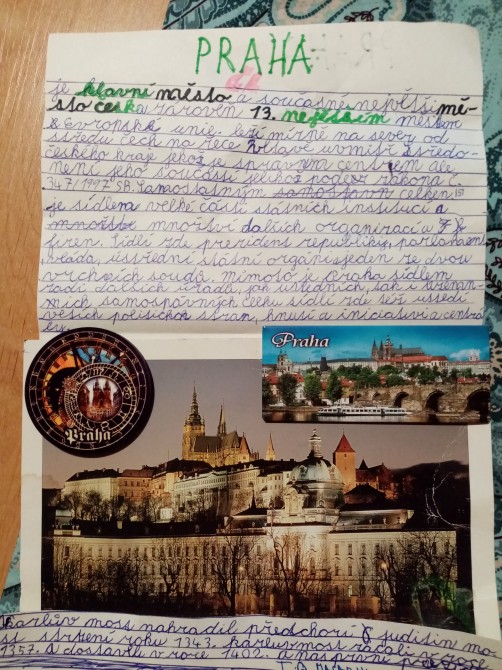 PRAHA
je hlavní město a současně největší mě-
sto česka zároveň 13. největším městem
Evropské unie. leží mírně na sever od
středu čech na řece vltavě uvnitř středo-
českého kraje jehož je správním centrem ale
není jeho součástí jelikož podle zákona č.
347/1997 SB. samostatným celkem
je sídlem velké části státních institucí a
množství dalších organizací a
firem. Sídlí zde prezident republiky, parlament
vláda, ústřední státní orgány jeden ze dvou
vrchních soudů. Mimoto je Praha sídlem
řady dalších úřadů, jak ústředních, tak i územ-
ních samosprávných celku sídlí zde též ústředí
většich politických stran, hnutí a iniciativ a centrá
Praha
Praha
Karlův most nahradil předchozí juditin mo-
st stržení roku 1342. karlův most začali v roce
1357. A dostavěli v roce 1402.